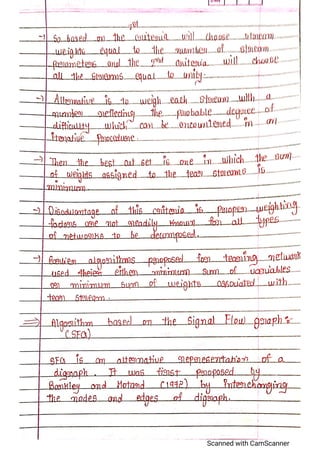 1st
→ So based on the criteria will choose stream
weights equal to the number of stream
parameters and the 2nd criteria will choose
all the streams equal to unity.
→ Alternative is to weigh each stream with a
number reflecting the probable degree of
difficulty which can be encountered in an
iterative procedure.
→ Then the best cut set is one in which the sum
of weights assigned to the tear streams is
minimum.
→ Disadvantage of this criteria is proper weighting
factors are not readily known for all types
of networks to be decomposed.
→ algorithms proposed for tearing network
used either minimum sum of variables
or minimum sum of weights associated with
tear stream.
⇒ Algorithm based on the Signal Flow graph :-
(SFG)
SFG is an alternative representation of a
digraph. It was first proposed by
Barkley and Motard (1972) by Interchanging
the nodes and edges of digraph.
Scanned with CamScanner